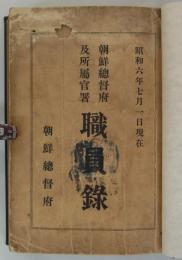 昭和六年七月一日現在
朝鮮總督府
及所屬官署
職員錄
朝鮮總督府